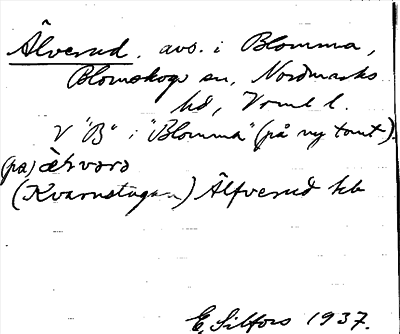 Älverud, avs. i Blomma,
Blomskogs sn, Nordmarks
hd, Vrml l.
V "B" i "Blomma" (på ny tomt).
(pa) 
(Kvarnstugan) Älfverud kb
E, Silfors 1937.